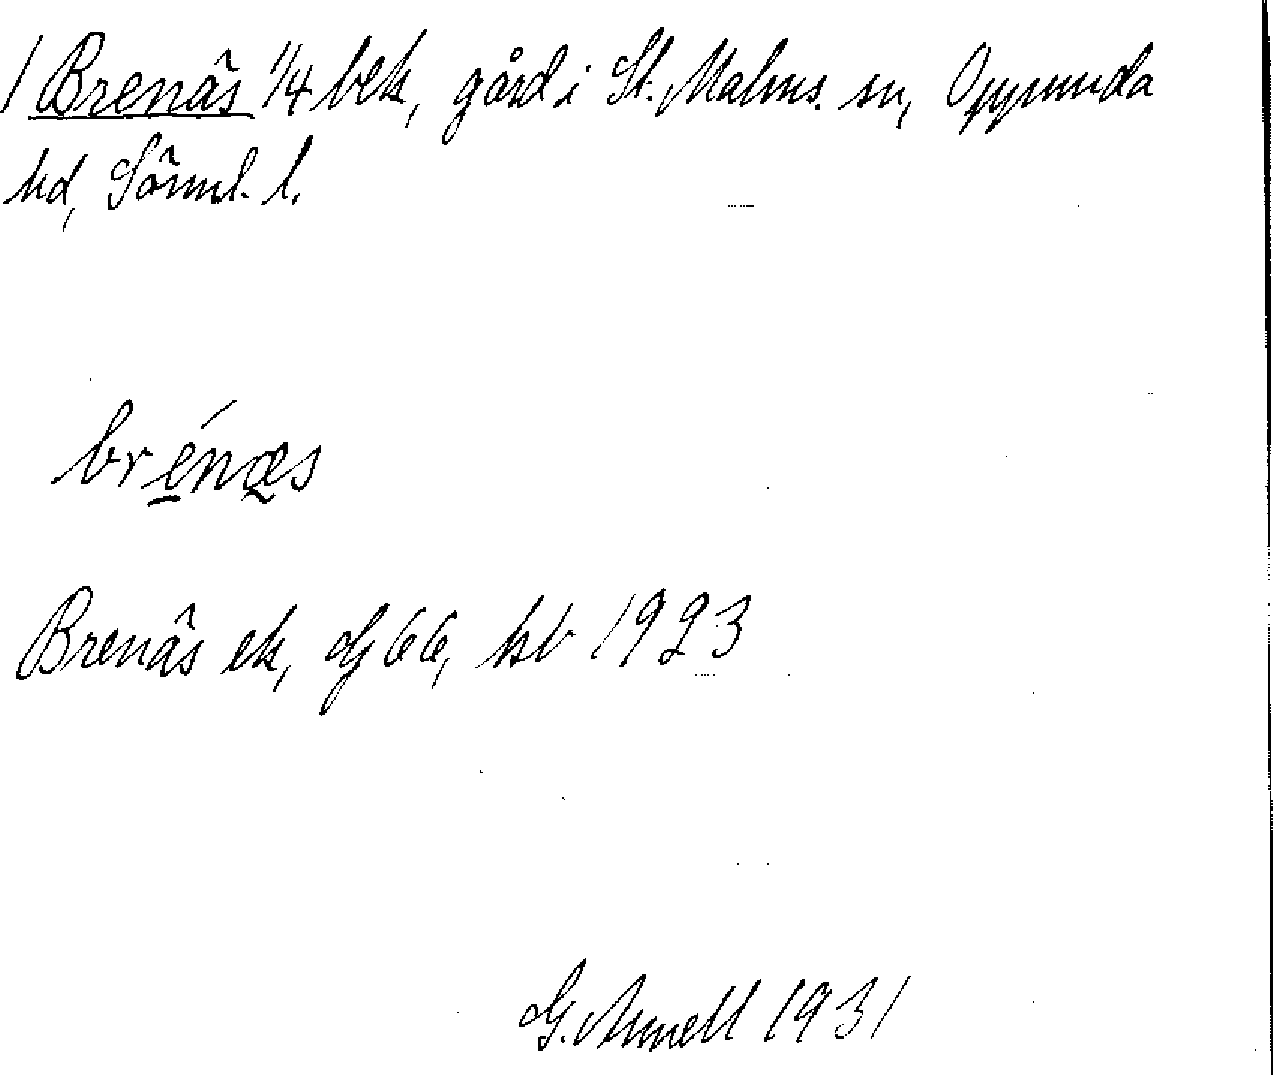 1 Brenäs 1/4 bek, gård i St. Malms. sn, Oppunda
hd, Sörml. l.
brénæs
Brenäs ek, G 66, hbl 1923
G. Arnell 1931